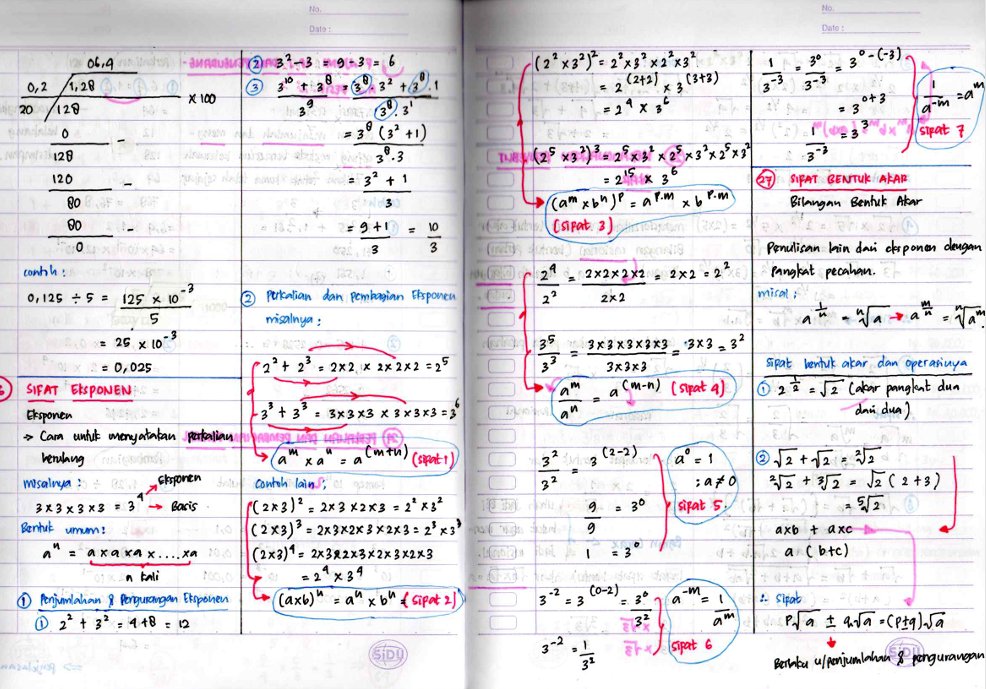 No.
Date :
06,4
0,2 √1,28
20 128 × 100
0 −
128
120 −
80
80 −
0
contoh :
0,125 ÷ 5 = 125 × 10⁻³ / 5
= 25 × 10⁻³
= 0,025
SIFAT EKSPONEN
Eksponen
→ Cara untuk menyatakan perkalian
berulang
misalnya : eksponen
3×3×3×3 = 3⁴ → Basis
Bentuk umum :
aⁿ = a×a×a×....×a
n kali
① Penjumlahan & Pengurangan Eksponen
① 2² + 3² = 4+8 = 12
② 3² − 3 = 9 − 3 = 6
③ 3¹⁰ + 3⁸ / 3⁹ = 3⁸ · 3² + 3⁸ · 1 / 3⁸ · 3¹
= 3⁸ (3² + 1) / 3⁸ · 3
= 3² + 1 / 3
= 9 + 1 / 3 = 10 / 3
② Perkalian dan pembagian Eksponen
misalnya :
2² + 2³ = 2×2 × 2×2×2 = 2⁵
3³ + 3³ = 3×3×3 × 3×3×3 = 3⁶
aᵐ × aⁿ = a⁽ᵐ⁺ⁿ⁾ (sifat 1)
Contoh lain :
(2×3)² = 2×3 × 2×3 = 2² × 3²
(2×3)³ = 2×3×2×3×2×3 = 2³ × 3³
(2×3)⁴ = 2×3×2×3×2×3×2×3
= 2⁴ × 3⁴
(a×b)ⁿ = aⁿ × bⁿ (sifat 2)
No.
Date :
(2² × 3²)² = 2² × 3² × 2² × 3²
= 2⁽²⁺²⁾ × 3⁽³⁺³⁾
= 2⁴ × 3⁶
(2⁵ × 3²)³ = 2⁵ × 3² × 2⁵ × 3² × 2⁵ × 3²
= 2¹⁵ × 3⁶
(aᵐ × bⁿ)ᵖ = aᵖ·ᵐ × bᵖ·ᵐ
(sifat 3)
2⁴ / 2² = 2×2×2×2 / 2×2 = 2×2 = 2²
3⁵ / 3³ = 3×3×3×3×3 / 3×3×3 = 3×3 = 3²
aᵐ / aⁿ = a⁽ᵐ⁻ⁿ⁾ (sifat 4)
3² / 3² = 3⁽²⁻²⁾
9 / 9 = 3⁰
1 = 3⁰
a⁰ = 1
; a ≠ 0
sifat 5
3⁻² = 3⁽⁰⁻²⁾ = 3⁰ / 3²
3⁻² = 1 / 3²
a⁻ᵐ = 1 / aᵐ
sifat 6
SiDU
1 / 3⁻³ = 3⁰ / 3⁻³ = 3⁰⁻⁽⁻³⁾
= 3⁰⁺³
1 / 3⁻³ = 3³
1 / a⁻ᵐ = aᵐ
sifat 7
27 SIFAT BENTUK AKAR
Bilangan Bentuk Akar
Penulisan lain dari eksponen dengan
pangkat pecahan.
misal :
a^(1/n) = ⁿ√a → a^(m/n) = ⁿ√aᵐ
Sifat bentuk akar dan operasinya
① 2^(1/2) = √2 (akar pangkat dua
dari dua)
② √2 + √2 = ²√2
²√2 + ³√2 = √2 (2+3)
= ⁵√2
a×b + a×c
a (b+c)
∴ Sifat
p√a ± q√a = (p±q)√a
Berlaku u/penjumlahan & pengurangan